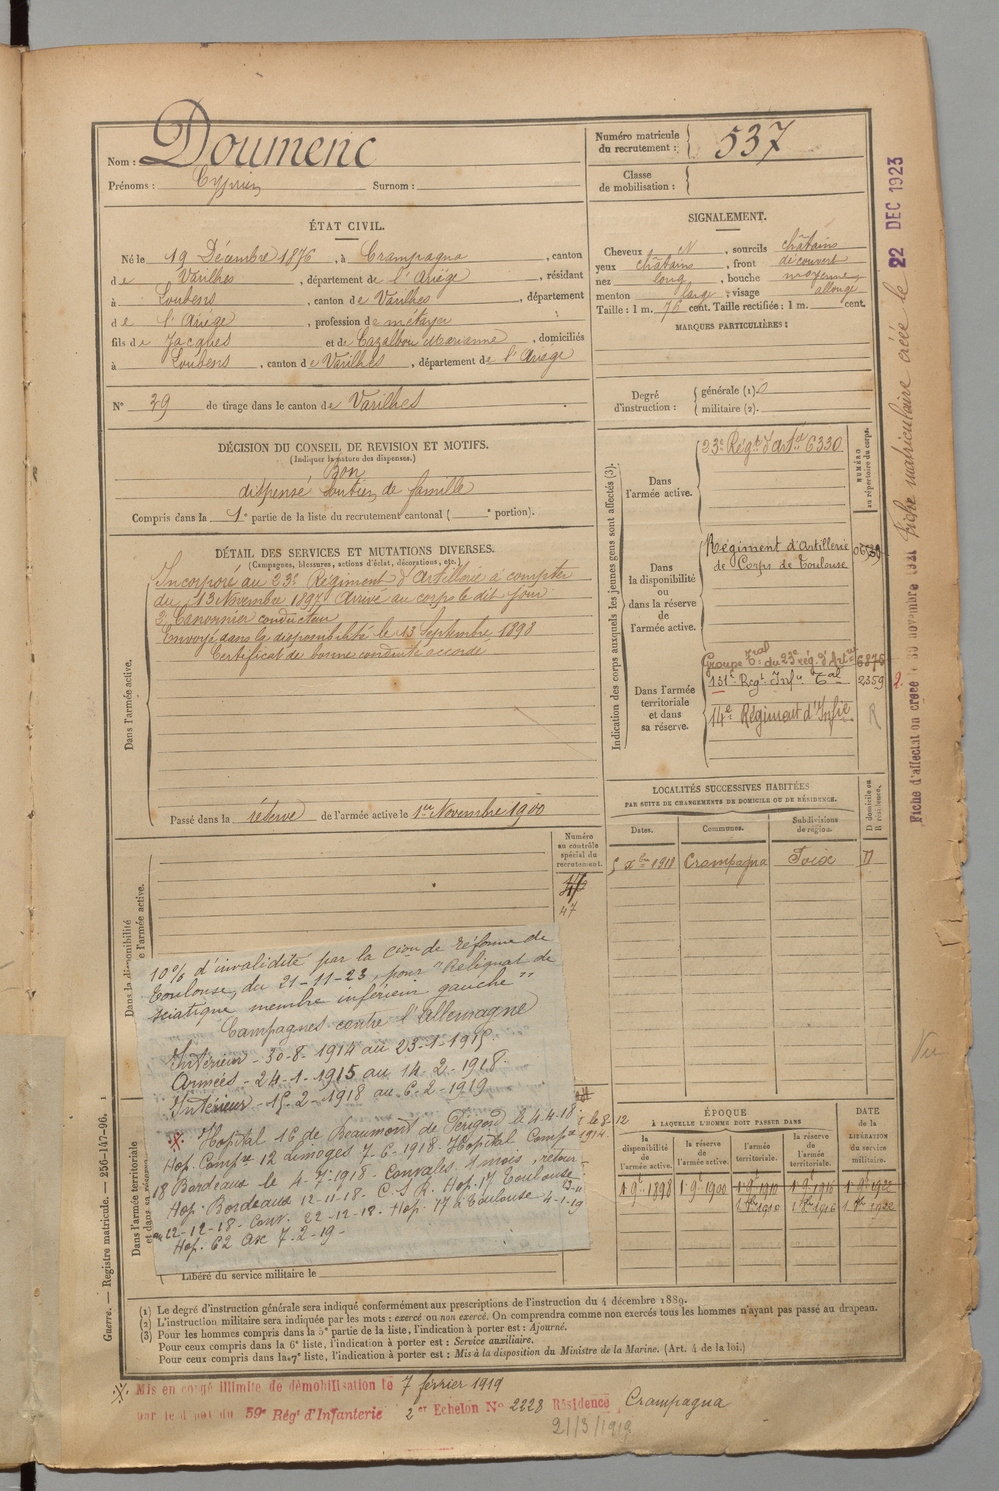 Nom : Doumenc
Prénoms : Cyprien Surnom :
Numéro matricule
du recrutement : 537
Classe
de mobilisation :
ÉTAT CIVIL.
Né le 19 Décembre 1876, à Crampagna, canton
de Varilhes, département de l'Ariège, résidant
à Loubens, canton de Varilhes, département
de l'Ariège, profession de métayer
fils de Jacques et de Cazalbou Marianne, domiciliés
à Loubens, canton de Varilhes, département de l'Ariège
N° 39 de tirage dans le canton de Varilhes
SIGNALEMENT.
Cheveux N, sourcils châtains
yeux châtains, front découvert
nez long, bouche moyenne
menton large, visage allongé
Taille : 1 m. 76 cent. Taille rectifiée : 1 m. cent.
MARQUES PARTICULIÈRES :
Degré
d'instruction :
générale (1) 0
militaire (2).
DÉCISION DU CONSEIL DE REVISION ET MOTIFS.
(Indiquer la nature des dispenses.)
Bon
dispensé soutien de famille
Compris dans la 1e partie de la liste du recrutement cantonal ( e portion).
DÉTAIL DES SERVICES ET MUTATIONS DIVERSES.
(Campagnes, blessures, actions d'éclat, décorations, etc.)
Dans l'armée active.
Incorporé au 23e Régiment d'Artillerie à compter
du 13 Novembre 1897. Arrivé au corps le dit jour
2e Canonnier conducteur
Envoyé dans la disponibilité le 13 Septembre 1898
Certificat de bonne conduite accordé
Passé dans la réserve de l'armée active le 1er Novembre 1900
Indication des corps auxquels les jeunes gens sont affectés (3).
NUMÉRO
au répertoire du corps.
Dans
l'armée active.
23e Régt d'Artie 6330
Dans
la disponibilité
ou
dans la réserve
de
l'armée active.
Régiment d'Artillerie
de Corps de Toulouse
Dans l'armée
territoriale
et dans
sa réserve.
Groupe Tral du 23e rég. d'Artie 6876
131e Regt Infie Tal 2359
14e Régiment d'Infie
R
LOCALITÉS SUCCESSIVES HABITÉES
PAR SUITE DE CHANGEMENTS DE DOMICILE OU DE RÉSIDENCE.
Dates. Communes. Subdivisions de région. D domicile ou R résidence.
5 Xbre 1911 Crampagna Foix D
Dans la disponibilité
Numéro
au contrôle
spécial du
recrutement.
47
10% d'invalidité par la Cion de réforme de
Toulouse, du 21-11-23, pour "Reliquat de
sciatique membre inférieur gauche"
Campagnes contre l'Allemagne
Intérieur - 30-8-1914 au 23-1-1915.
Armées - 24-1-1915 au 14-2-1918.
Intérieur - 15-2-1918 au 6-2-1919
Hopital 16 de Beaumont de Périgord le 4-4-18
Hop. Compre 12 Limoges 7-6-1918. Hopital Compre
18 Bordeaux le 4-7-1918. Convales. 1 mois, retour
Hop. Bordeaux 12-11-18. C.S.R. Hop. 17 Toulouse
12-12-18. Conv. 22-12-18. Hop. 17 à Toulouse 4-1-19
Hop. 62 Ax 7-2-19-
Dans l'armée territoriale
et dans sa réserve.
Libéré du service militaire le
ÉPOQUE
À LAQUELLE L'HOMME DOIT PASSER DANS
la disponibilité de l'armée active. la réserve de l'armée active. l'armée territoriale. la réserve de l'armée territoriale.
DATE
de la
LIBÉRATION
du service
militaire.
1 9e 1898 1 9e 1900 1 9e 1910 1 9e 1916 1 9e 1922
1 8bre 1910 1 8bre 1916 1 8bre 1922
(1) Le degré d'instruction générale sera indiqué conformément aux prescriptions de l'instruction du 4 décembre 1889.
(2) L'instruction militaire sera indiquée par les mots : exercé ou non exercé. On comprendra comme non exercés tous les hommes n'ayant pas passé au drapeau.
(3) Pour les hommes compris dans la 5e partie de la liste, l'indication à porter est : Ajourné.
Pour ceux compris dans la 6e liste, l'indication à porter est : Service auxiliaire.
Pour ceux compris dans la 7e liste, l'indication à porter est : Mis à la disposition du Ministre de la Marine. (Art. 4 de la loi.)
Mis en congé illimité de démobilisation le 7 février 1919
par le dépôt du 59e Régt d'Infanterie 2er Echelon N° 2228 Résidence Crampagna
21/3/1919
Guerre. — Registre matricule. — 256-147-96.
Fiche matriculaire créée le 22 DEC 1923
Vu